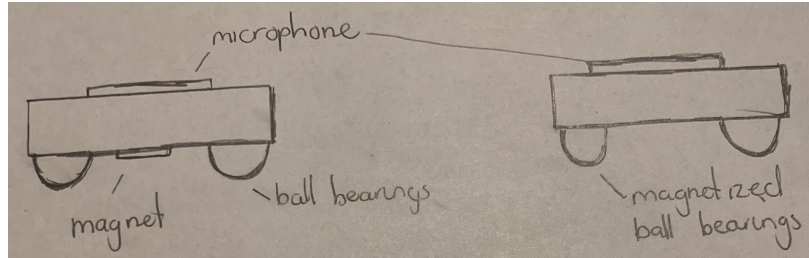 microphone
magnet
ball bearings
magnetized
ball bearings